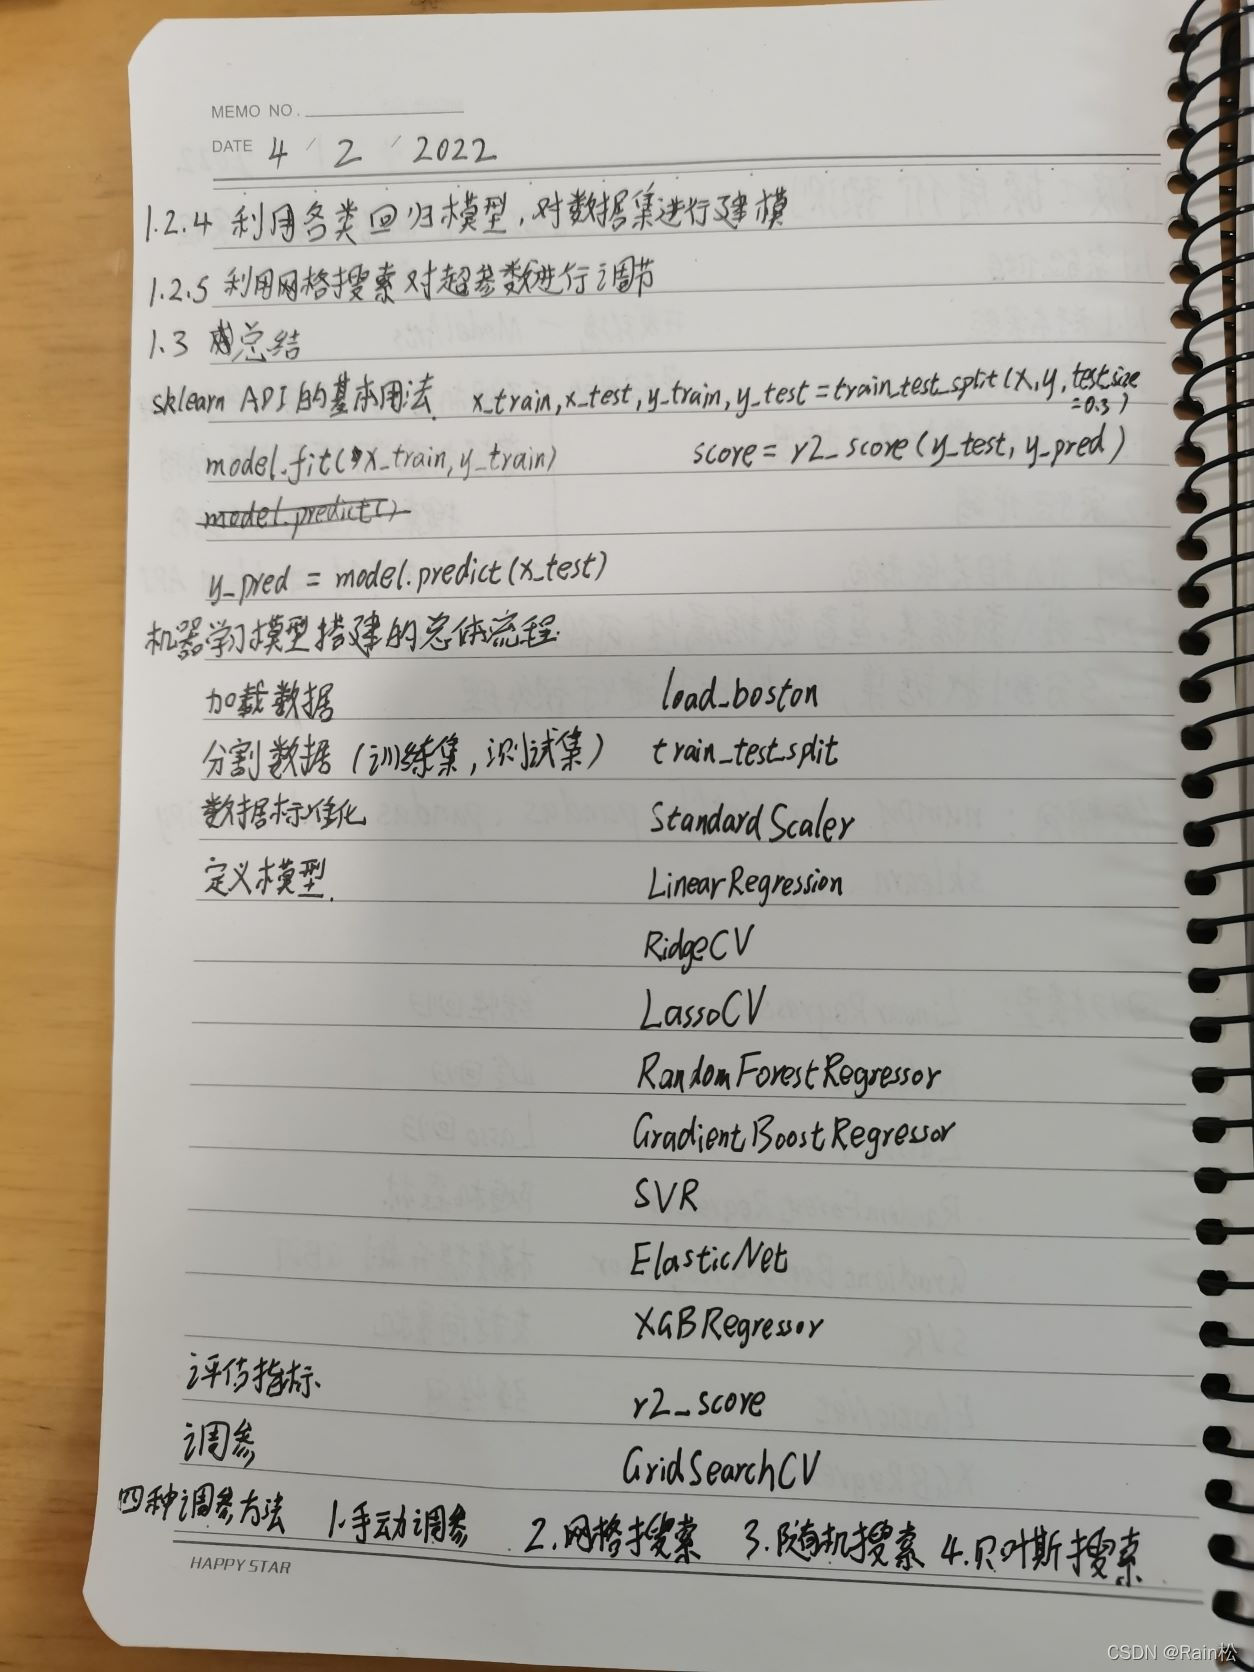 MEMO NO.
DATE 4 / 2 / 2022
1.2.4 利用各类回归模型,对数据集进行建模
1.2.5 利用网格搜索对超参数进行调节
1.3 总结
sklearn API的基本用法. x_train,x_test,y_train,y_test=train_test_split(x,y,test_size
=0.3)
model.fit(x_train,y_train) score=r2_score(y_test,y_pred)
model.predict()
y_pred = model.predict(x_test)
机器学习模型搭建的总体流程.
加载数据 load_boston
分割数据(训练集,测试集) train_test_split
数据标准化 StandardScaler
定义模型. LinearRegression
RidgeCV
LassoCV
RandomForestRegressor
GradientBoostRegressor
SVR
ElasticNet
XGBRegressor
评估指标. r2_score
调参 GridSearchCV
四种调参方法 1.手动调参 2.网格搜索 3.随机搜索 4.贝叶斯搜索.
HAPPY STAR
CSDN @Rain松